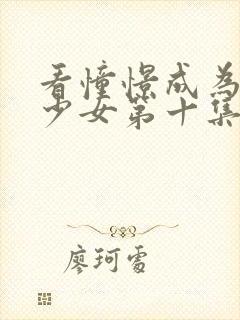 看憧憬成為
少女第十集
廖珂雪